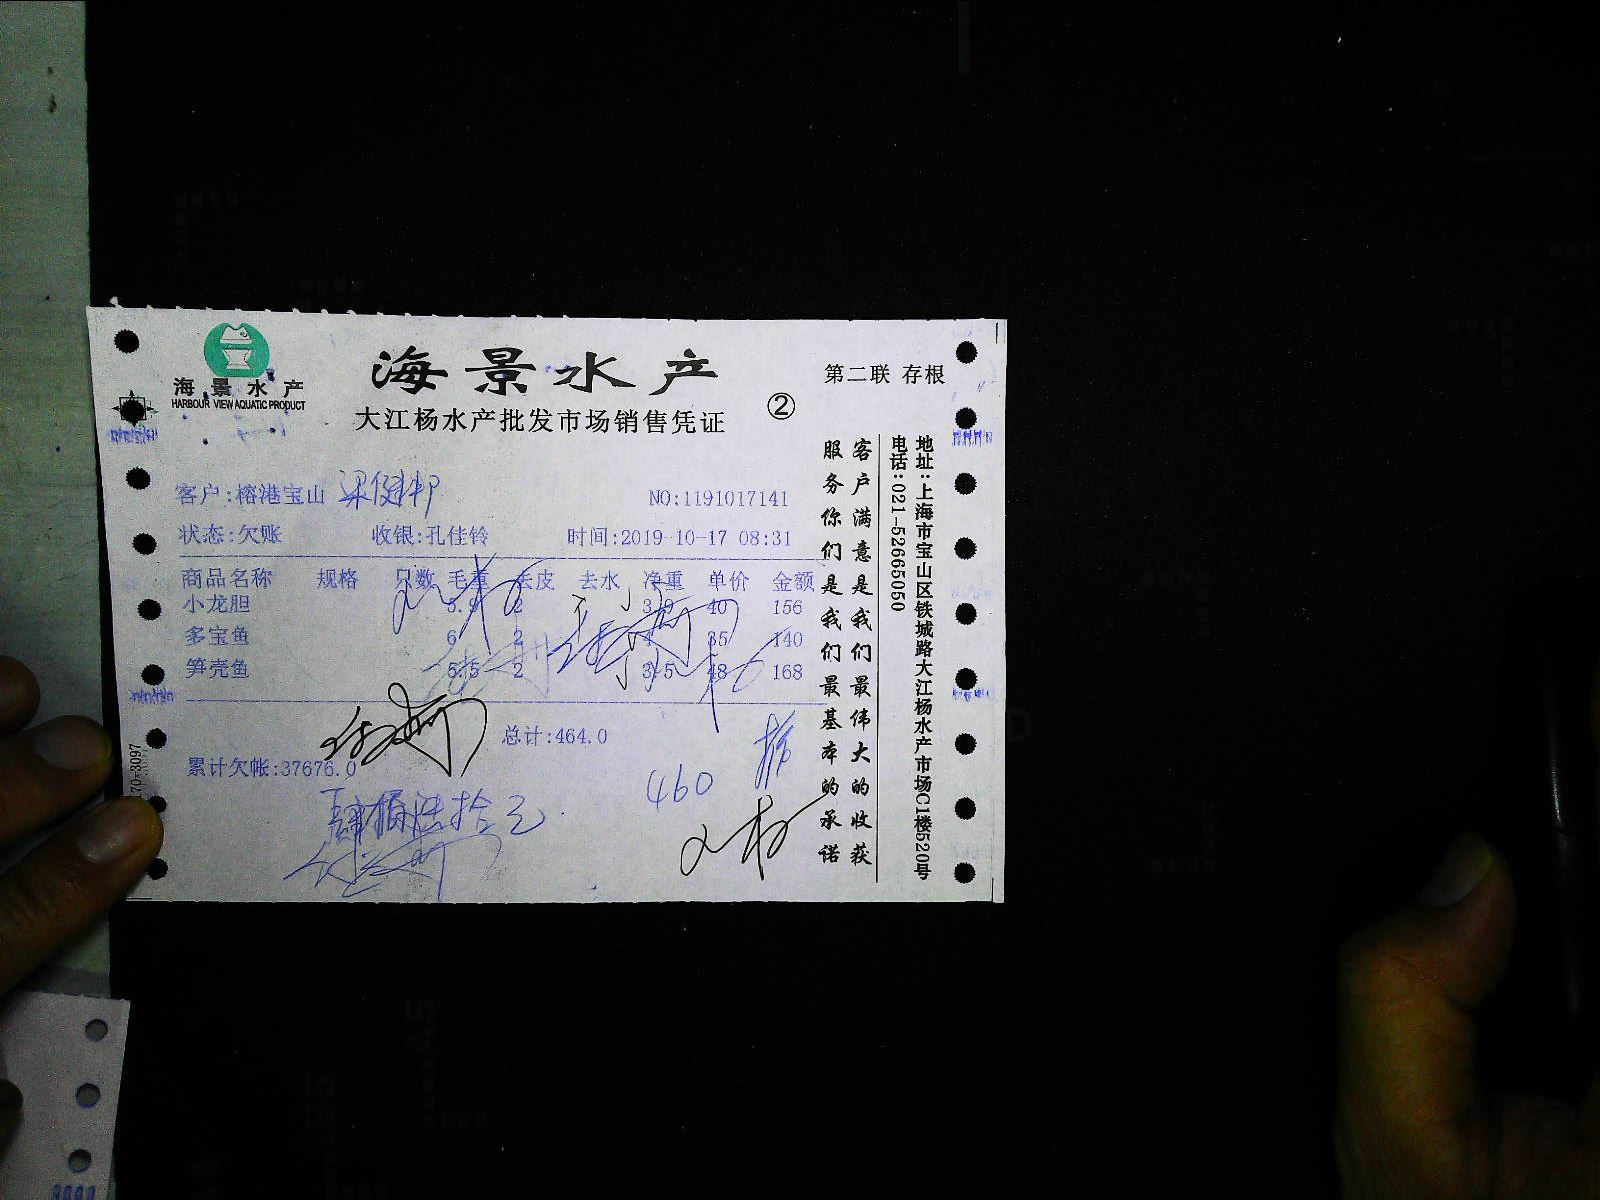 海景水产
HARBOUR VIEW AQUATIC PRODUCT
海景水产
大江杨水产批发市场销售凭证
②
第二联 存根
客户:榕港宝山 梁健邦
NO:1191017141
状态:欠账 收银:孔佳铃 时间:2019-10-17 08:31
商品名称 规格 只数 毛重 去皮 去水 净重 单价 金额
小龙胆 5.9 2 3.9 40 156
多宝鱼 6 2 4 35 140
笋壳鱼 5.5 2 3.5 48 168
总计:464.0
累计欠帐:37676.0
460
肆佰陆拾元
客户满意是我们最伟大的收获
服务你们是我们最基本的承诺
地址:上海市宝山区铁城路大江杨水产市场C1楼520号
电话:021-52665050
70-3097